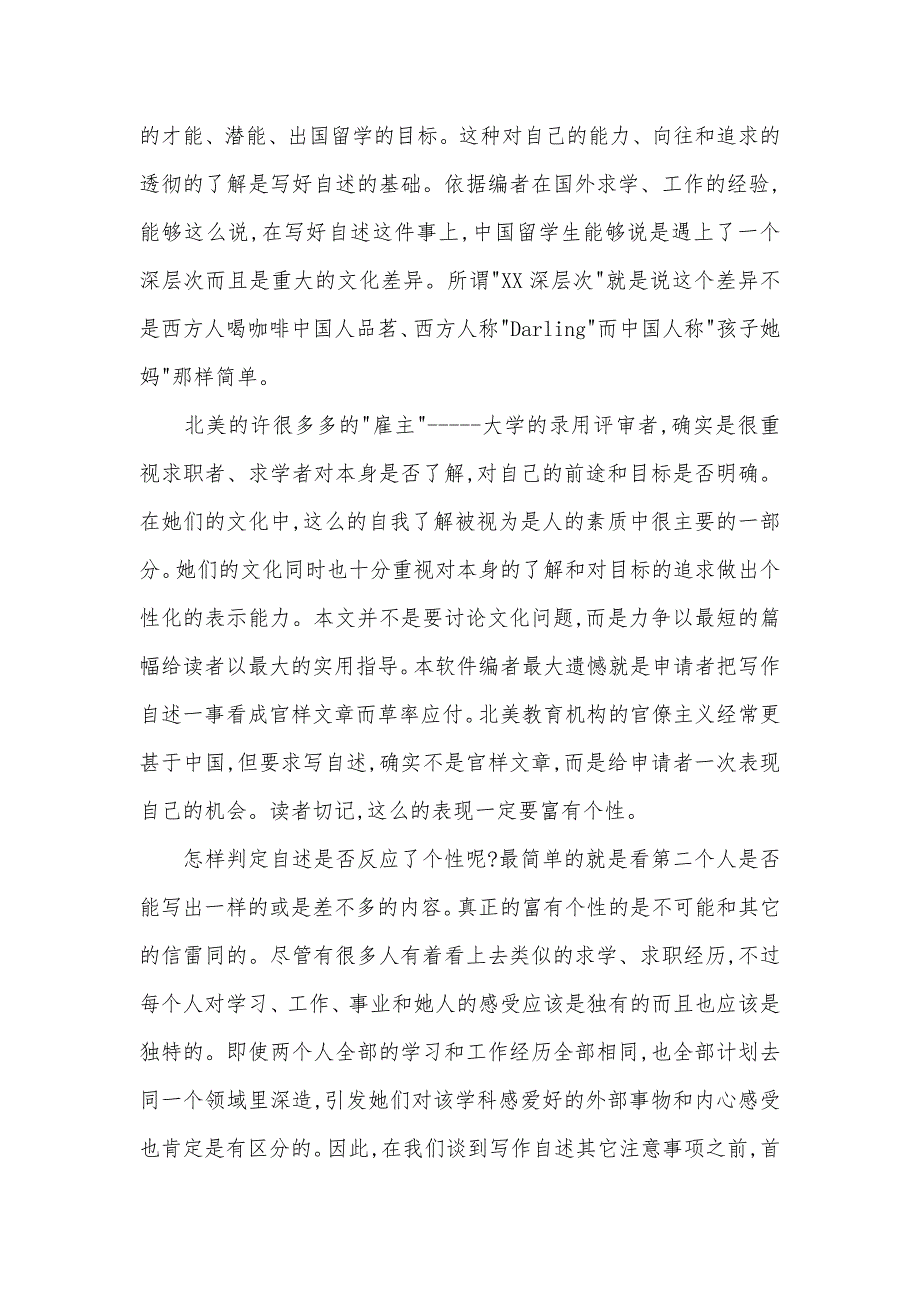 的才能、潜能、出国留学的目标。这种对自己的能力、向往和追求的
透彻的了解是写好自述的基础。依据编者在国外求学、工作的经验,
能够这么说,在写好自述这件事上,中国留学生能够说是遇上了一个
深层次而且是重大的文化差异。所谓"XX深层次"就是说这个差异不
是西方人喝咖啡中国人品茗、西方人称"Darling"而中国人称"孩子她
妈"那样简单。
北美的许很多多的"雇主"-----大学的录用评审者,确实是很重
视求职者、求学者对本身是否了解,对自己的前途和目标是否明确。
在她们的文化中,这么的自我了解被视为是人的素质中很主要的一部
分。她们的文化同时也十分重视对本身的了解和对目标的追求做出个
性化的表示能力。本文并不是要讨论文化问题,而是力争以最短的篇
幅给读者以最大的实用指导。本软件编者最大遗憾就是申请者把写作
自述一事看成官样文章而草率应付。北美教育机构的官僚主义经常更
甚于中国,但要求写自述,确实不是官样文章,而是给申请者一次表现
自己的机会。读者切记,这么的表现一定要富有个性。
怎样判定自述是否反应了个性呢?最简单的就是看第二个人是否
能写出一样的或是差不多的内容。真正的富有个性的是不可能和其它
的信雷同的。尽管有很多人有着看上去类似的求学、求职经历,不过
每个人对学习、工作、事业和她人的感受应该是独有的而且也应该是
独特的。即使两个人全部的学习和工作经历全部相同,也全部计划去
同一个领域里深造,引发她们对该学科感爱好的外部事物和内心感受
也肯定是有区分的。因此,在我们谈到写作自述其它注意事项之前,首